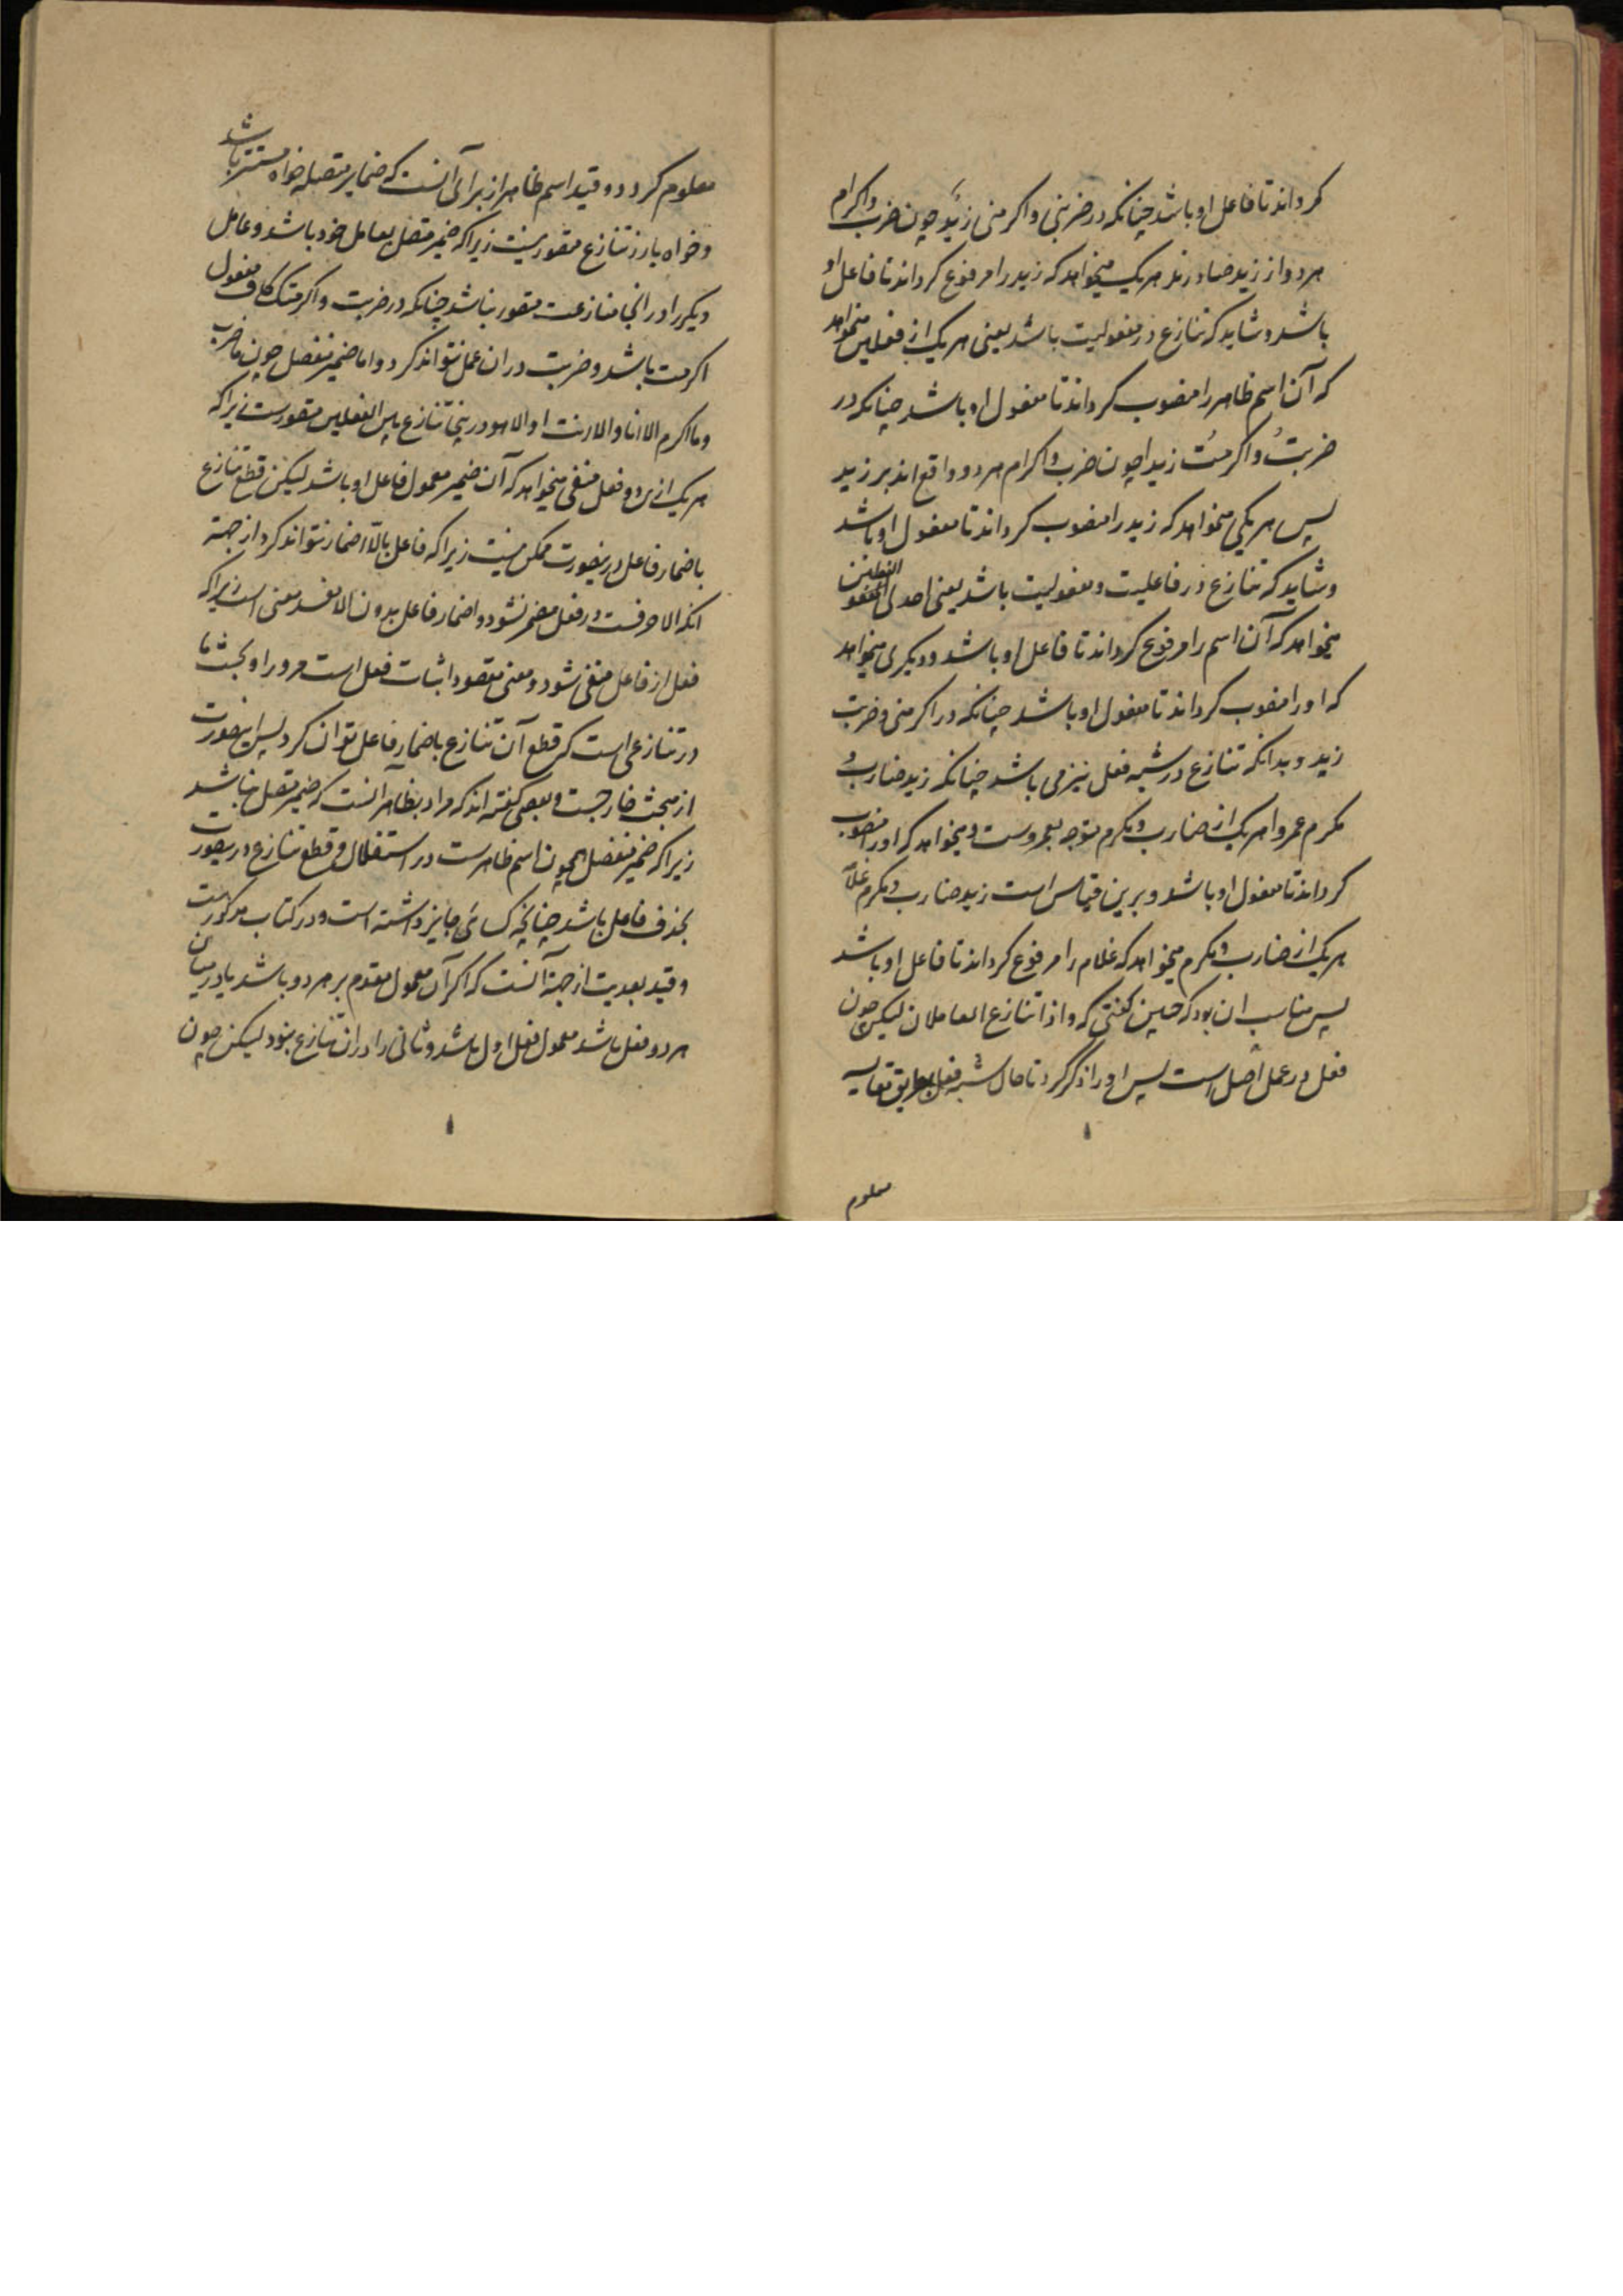 کرداند تا فاعل او باشد چنانکه در ضربنی و اکرمنی زیدٌ چون ضرب و اکرام
هر دو از زید صادرند هر یک میخواهد که زید را مرفوع کرداند تا فاعل او
باشد و شاید که تنازع در مفعولیت باشد یعنی هر یک از فعلین میخواهد
که آن اسم ظاهر را منصوب کرداند تا مفعول او باشد چنانکه در
ضربتُ و اکرمتُ زیدا چون ضرب و اکرام هر دو واقع اند بر زید
پس هر یکی میخواهد که زید را منصوب کرداند تا مفعول او باشد
و شاید که تنازع در فاعلیت و مفعولیت باشد یعنی احدی الفعلین
میخواهد که آن اسم را مرفوع کرداند تا فاعل او باشد و دیکری میخواهد
که او را منصوب کرداند تا مفعول او باشد چنانکه در اکرمنی و ضربت
زید و بدانکه تنازع در شبه فعل نیز می باشد چنانکه زید ضارب و
مکرم عمروا هر یک از ضارب و مکرم متوجه بعمروست و میخواهد که او را منصوب
کرداند تا مفعول او باشد و برین قیاس است زید ضارب و مکرم غلامه
هر یک از ضارب و مکرم میخواهد که غلام را مرفوع کرداند تا فاعل او باشد
پس مناسب ان بود که چنین کفتی که و اذا تنازع العاملان لیکن چون
فعل در عمل اصل است پس او را ذکر کرد تا حال شبه فعل بطریق مقایسه
معلوم
معلوم کردد و قید اسم ظاهر از برای آنست که ضمایر متصله خواه مستتر باشد
و خواه بارز تنازع متصور نیست زیرا که ضمیر متصل بعامل خود باشد و عامل
دیکر را در انجا منازعت متصور نباشد چنانکه در ضربت و اکرمتک کاف مفعول
اکرمت باشد و ضربت در ان عمل نتواند کرد و اما ضمیر منفصل چون ما ضرب
و ما اکرم الا انا و الا انت او الا هو درینجا تنازع بین الفعلین متصورست زیرا که
هر یک ازین دو فعل منفی میخواهد که آن ضمیر معمول فاعل او باشد لیکن قطع تنازع
باضمار فاعل درینصورت ممکن نیست زیرا که فاعل بالا اضمار نتواند کرد از جهة
انکه الا حرفست و در فعل مضمر نشود و اضمار فاعل بدون الا مفسد معنی است زیرا که
فعل از فاعل منفی شود و معنی مقصود اثبات فعل است مر او را و بحث ما
در تنازعی است که قطع آن تنازع باضمار فاعل توان کرد پس اینصورت
از مبحث خارجست و بعضی کفته اند که مراد بظاهر آنست که ضمیر متصل نباشد
زیرا که ضمیر منفصل همچون اسم ظاهرست در استقلال و قطع تنازع درینصورت
بحذف فاعل باشد چنانچه کسائی جایز داشته است و در کتاب مذکورست
و قید بعدیت از جهة آنست که اکر آن معمول مقدم بر هر دو باشد یا در میان
هر دو فعل باشد معمول فعل اول باشد و ثانی را در ان تنازع نبود لیکن چون